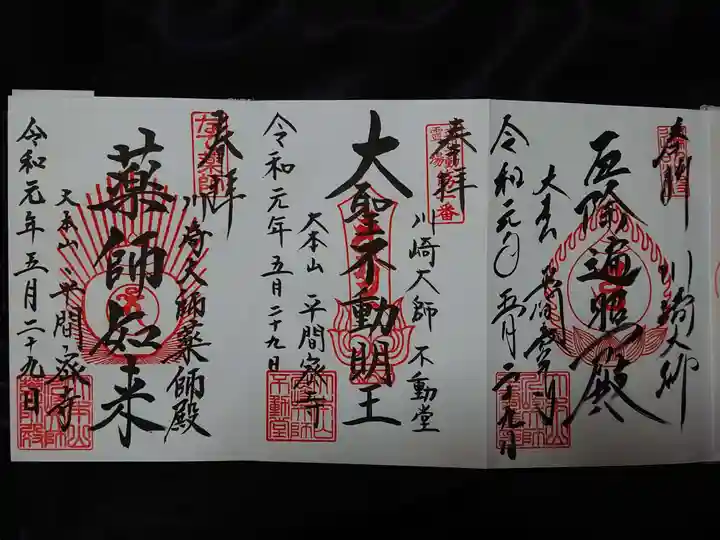 奉拝
川崎大師
遍照殿
大本山
平間寺
令和元年
五月二十九日
奉拝
霊場
一番
川崎大師 不動堂
大聖不動明王
大本山 平間寺
令和元年五月二十九日
不動堂
奉拝
なで薬師
川崎大師薬師殿
薬師如来
大本山 平間寺
令和元年五月二十九日